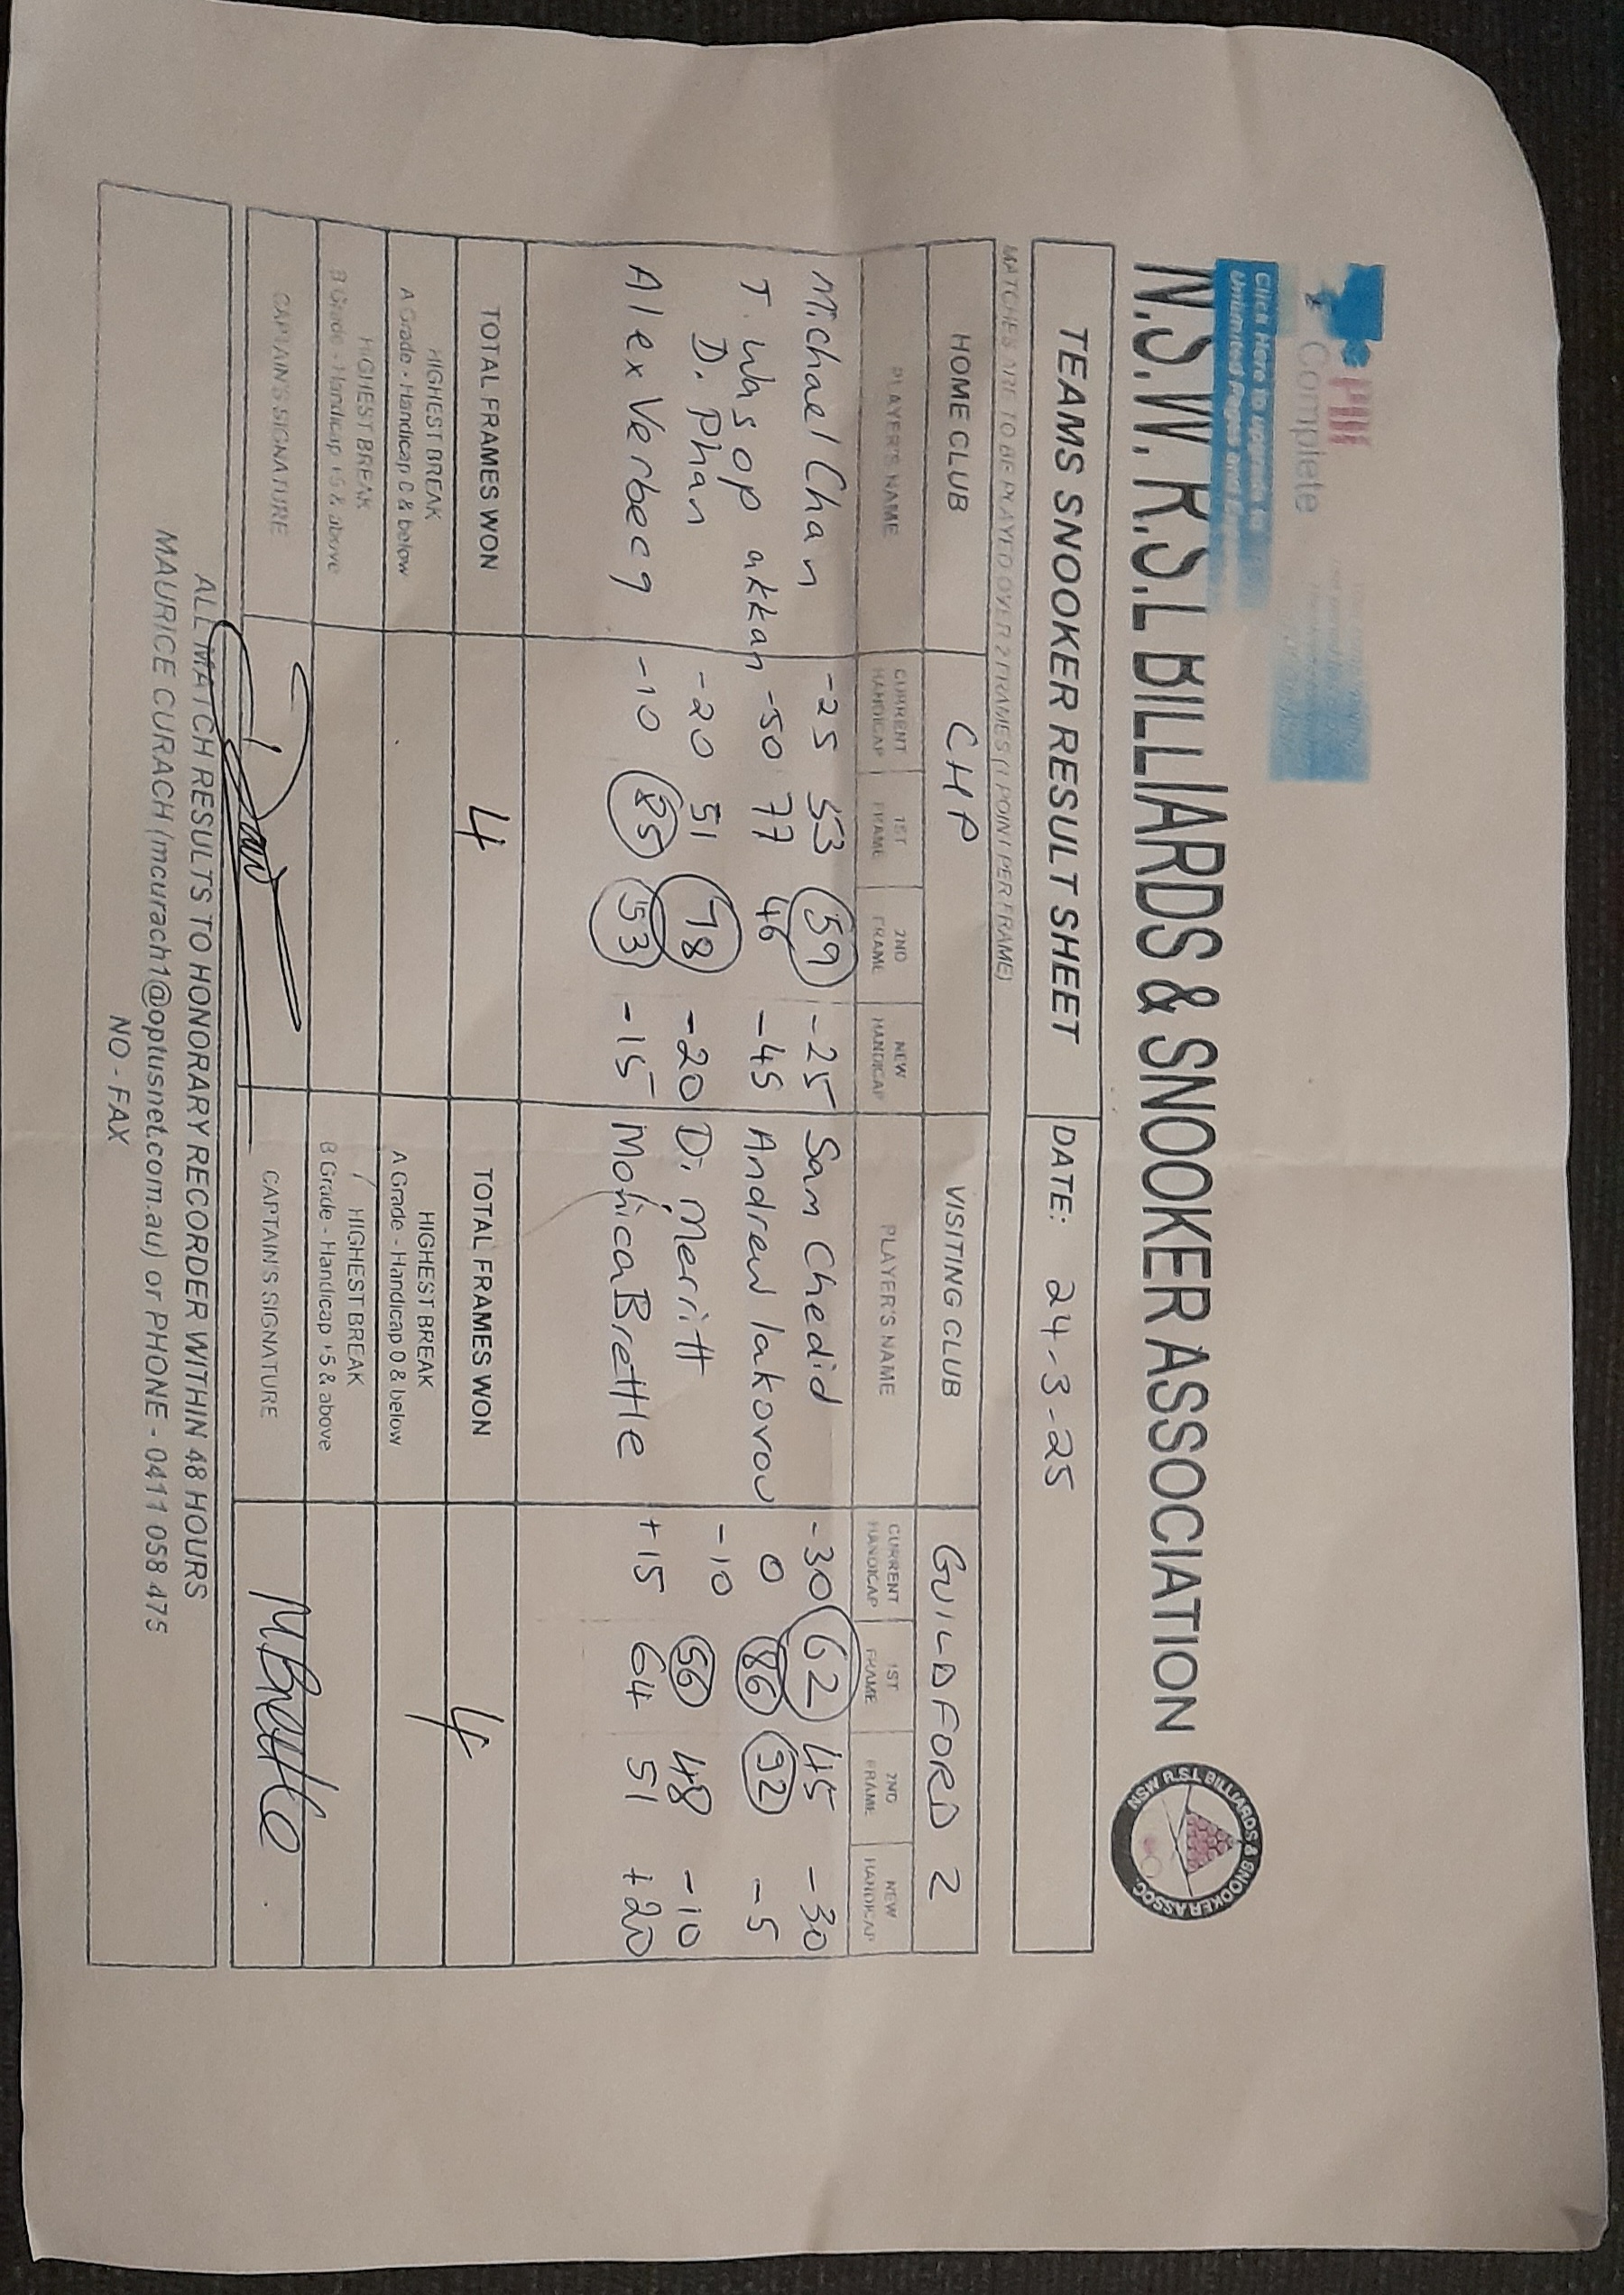 PDF
Complete
Click Here to upgrade to
Unlimited Pages and
N.S.W. R.S.L BILLIARDS & SNOOKER ASSOCIATION
NSW R.S.L BILLIARDS & SNOOKER ASSOC.
TEAMS SNOOKER RESULT SHEET DATE: 24-3-25
MATCHES ARE TO BE PLAYED OVER 2 FRAMES (1 POINT PER FRAME)
HOME CLUB CHP VISITING CLUB GUILDFORD 2
PLAYER'S NAME CURRENT HANDICAP 1ST FRAME 2ND FRAME NEW HANDICAP PLAYER'S NAME CURRENT HANDICAP 1ST FRAME 2ND FRAME NEW HANDICAP
Michael Chan -25 53 59 -25 Sam Chedid -30 62 45 -30
T. Wasop akkan -50 77 46 -45 Andrew Iakovou 0 86 92 -5
D. Phan -20 51 78 -20 D. Merritt -10 56 48 -10
Alex Verbecq -10 85 53 -15 Monica Brettle +15 64 51 +20
TOTAL FRAMES WON 4 TOTAL FRAMES WON 4
HIGHEST BREAK HIGHEST BREAK
A Grade - Handicap 0 & below A Grade - Handicap 0 & below
HIGHEST BREAK HIGHEST BREAK
B Grade - Handicap +5 & above B Grade - Handicap +5 & above
CAPTAIN'S SIGNATURE CAPTAIN'S SIGNATURE MBrettle
ALL MATCH RESULTS TO HONORARY RECORDER WITHIN 48 HOURS
MAURICE CURACH (mcurach1@optusnet.com.au) or PHONE - 0411 058 475
NO - FAX